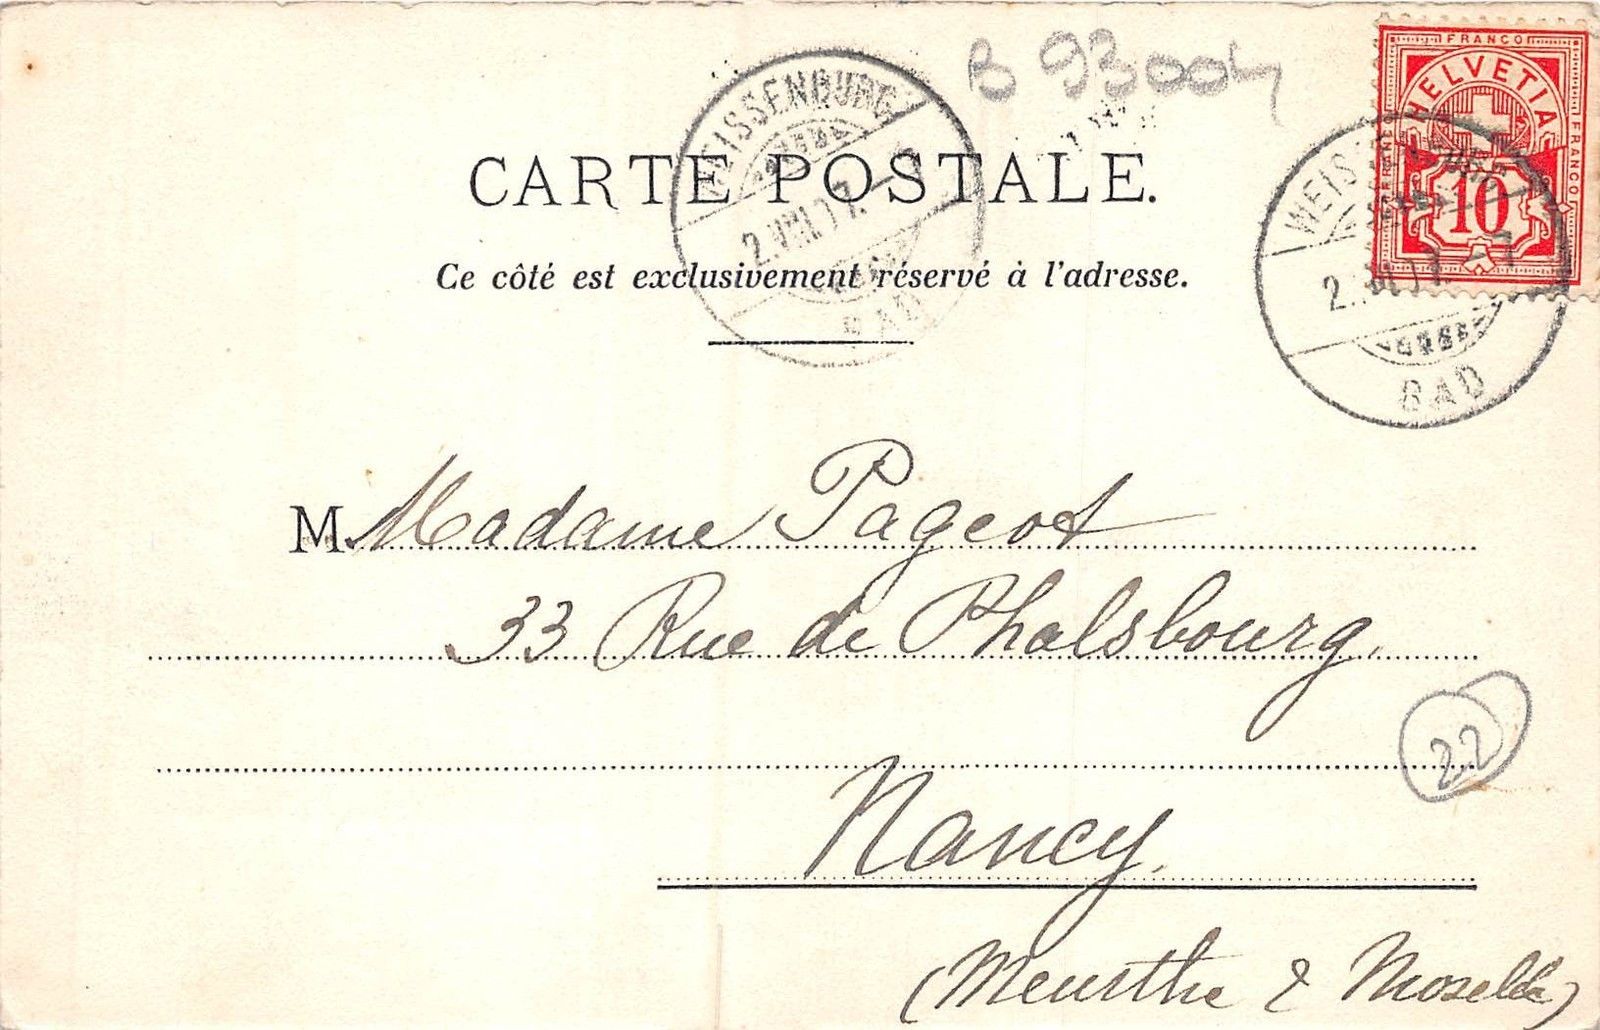 B 93004
FRANCO
HELVETIA
FRANCO
10
WEISSENBURG
2.VIII.
BAD
WEISSENBURG
2.VIII.
BAD
CARTE POSTALE.
Ce côté est exclusivement réservé à l'adresse.
M Madame Pageot
33 Rue de Phalsbourg.
22
Nancy.
(Meurthe & Moselle)